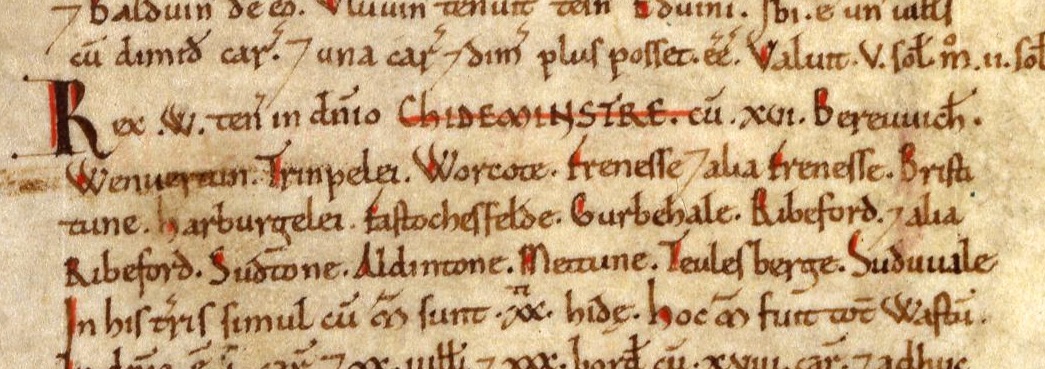 ⁊ Balduin de eo. Vluuin tenuit tein Eduini. Ibi.e un uills
cū dimid car̄. ⁊ una car̄ ⁊ dim̄ plus posset.ēē. Valuit.V.sol. m̊.ii.sol
Rex.W. ten̄ in dn̄io CHIDEMINSTRE. cū.xvi. Bereuuich.
Wenuertun. Trinpelei. Worcote. Frenesse ⁊ alia Frenesse. Bristi
tune. Harburgelei. Fastochesfelde. Gurbehale. Ribeford. ⁊ alia
Ribeford. Sudtone. Aldintone. Mettune. Teulesberge. Suduuale
In his tr̄is simul cū m̄ sunt.xx. hidę. Hoc m̄ fuit tot̄ Wastū.
⁊ xx. uilli ⁊ xxx. bord cū.xviii. car̄. ⁊ adhuc